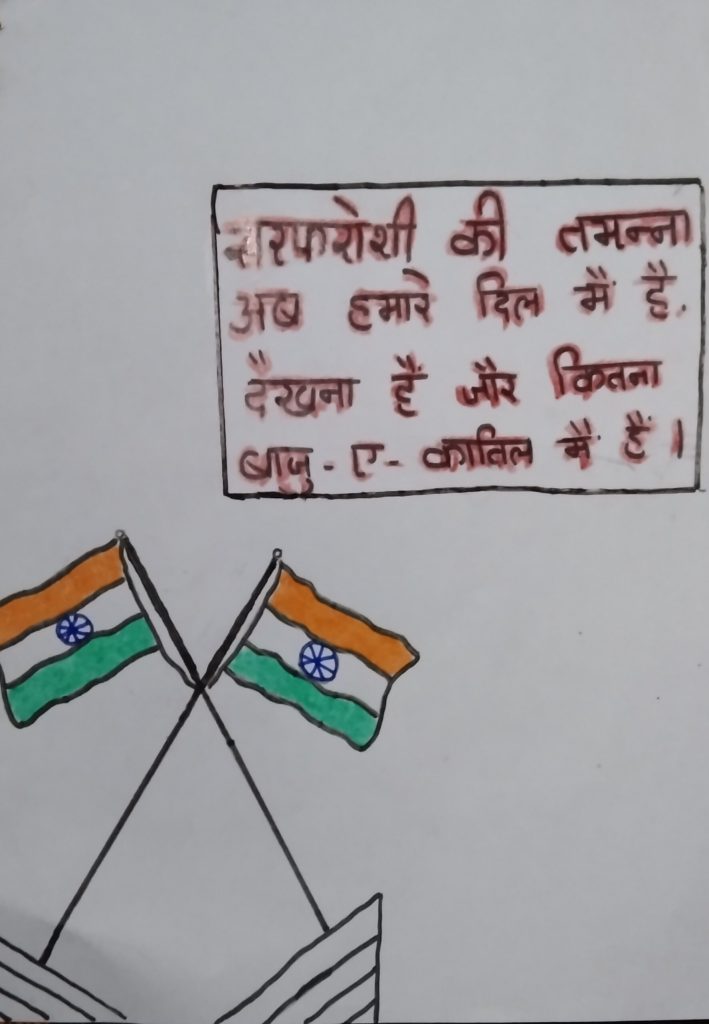 सरफरोशी की तमन्ना
अब हमारे दिल मैं है.
दैखना हैं जौर कितना
बाजु-ए-कातिल मैं हैं।